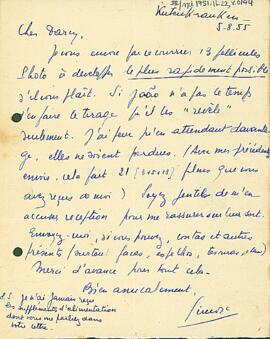 Cher Darcy,
5-8-55
Je vous envoie par ce courrier 13 pellicules
Photo à développer le plus rapidement possible
s'il vous plaît. Si João n'a pas le temps
d'en faire le tirage qu'il les "révèle"
seulement. J'ai peur qu'en attendant davanta-
ge, elles ne soient perdues. (Avec mes précédents
envois, cela fait 21 plus que vous
avez reçus de moi). Soyez gentil de m'en
accuser réception pour me rassurer sur leur sort.
Envoyez-moi, si vous pouvez, contas et autres
présents (surtout facas, tesouras, etc)
Merci d'avance pour tout cela.
Bien amicalement,
Simone
P.S. je n'ai jamais reçu
les suppléments d'alimentation
dont vous me parliez dans
votre lettre.